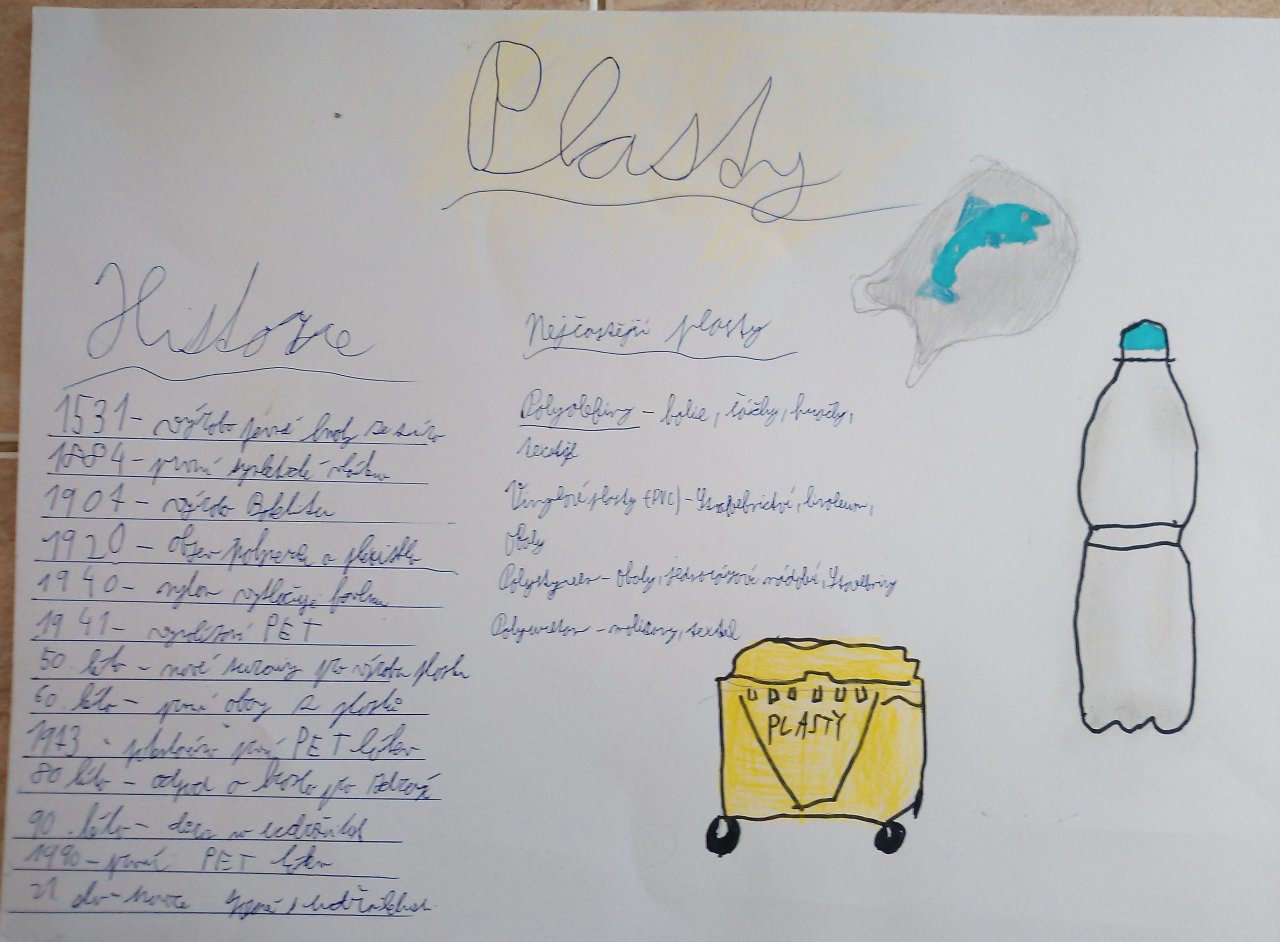 Plasty
Historie
1531 - výroba první hmoty ze sýra
1884 - první syntetické vlákno
1907 - výroba
1920 - objev a
1940 - nylon vytlačuje bavlnu
1941 - PET
50. léta - nové suroviny pro výrobu plastu
60. léta - první obaly z plastu
1973 - první PET láhev
80 léta - odpad a hrozba pro
90. léta - důraz na
1990 - první PET láhev
21
Nejčastější plasty
Polyolefiny - folie, tašky, hračky,
textil
Vinylové plasty (PVC) - Stavebnictví, linoleum,
obaly
Polystyren - obaly, jednorázové nádobí, Stavebniny
Polyuretan - molitany, textil
PLASTY